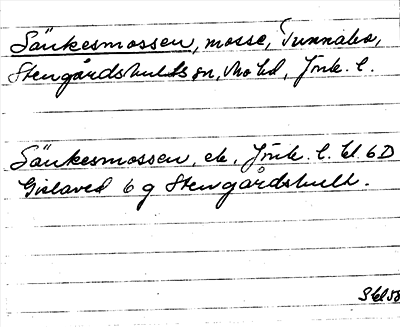 Sänkesmossen, mosse, Tunnabo,
Stengårdshults sn, Mo hd, Jönk. l.
Sänkesmossen, ek, Jönk. l. bl 6D
Gislaved 6 g Stengårdshult.